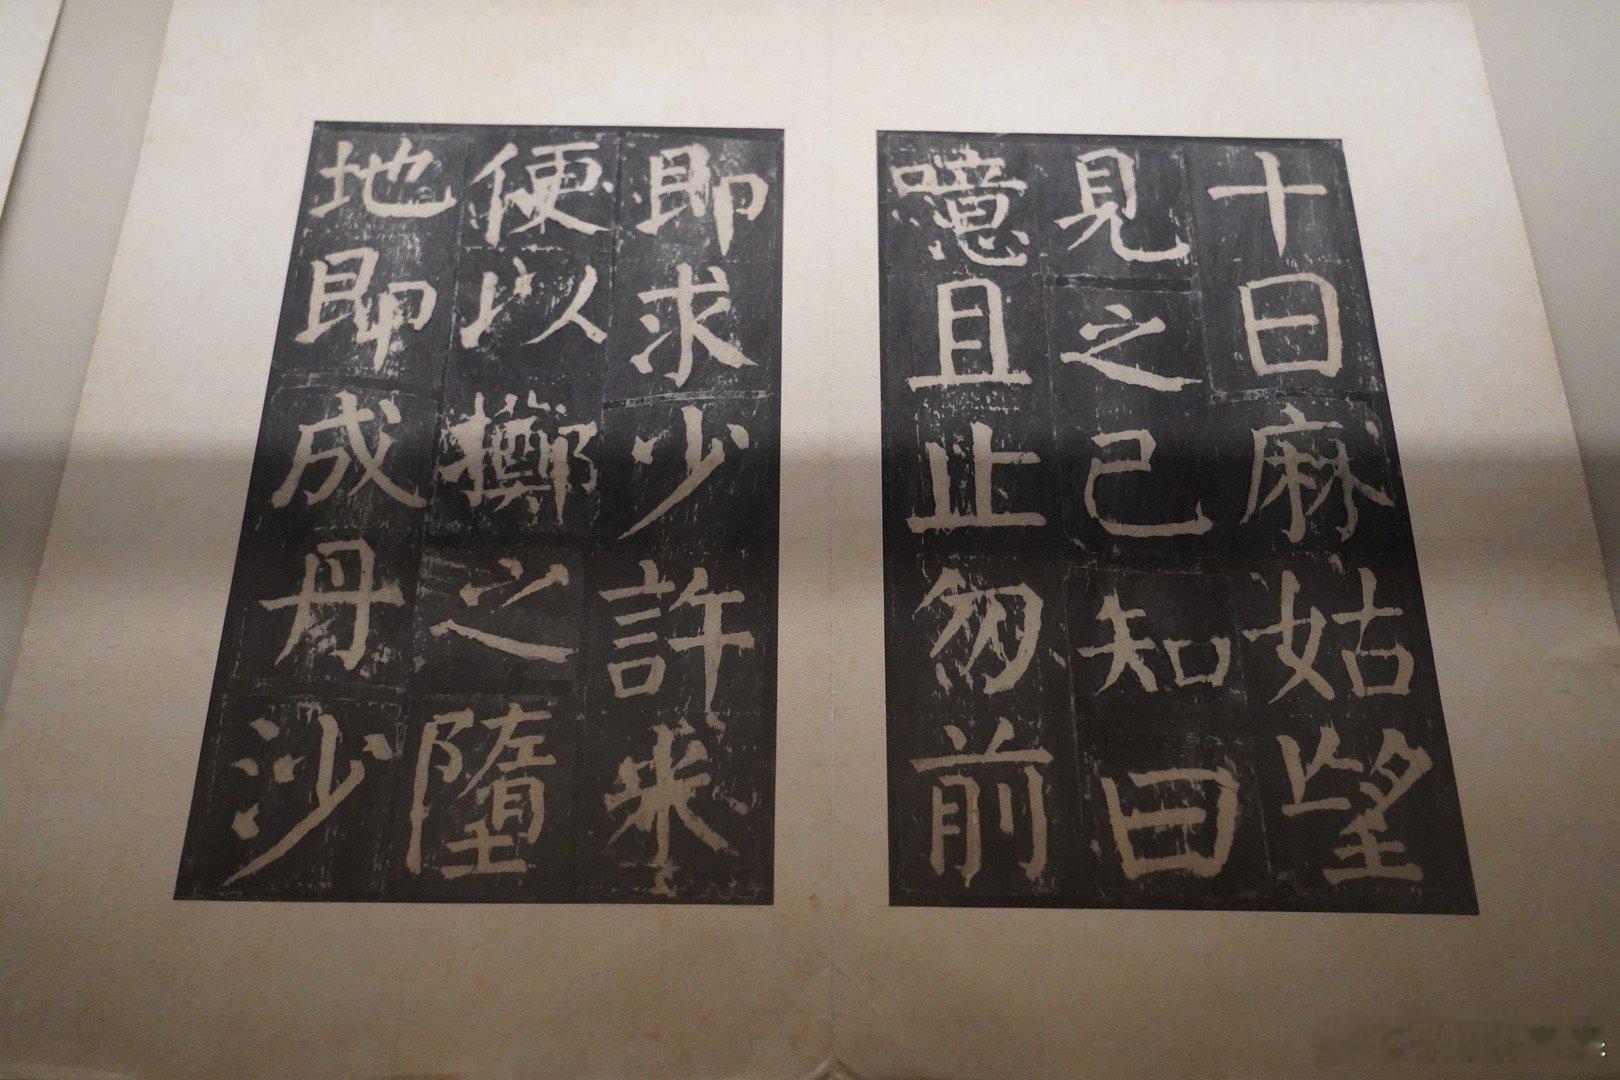 十日麻姑望
見之已知曰
噫且止勿前
即求少許米
便以擲之墮
地即成丹沙